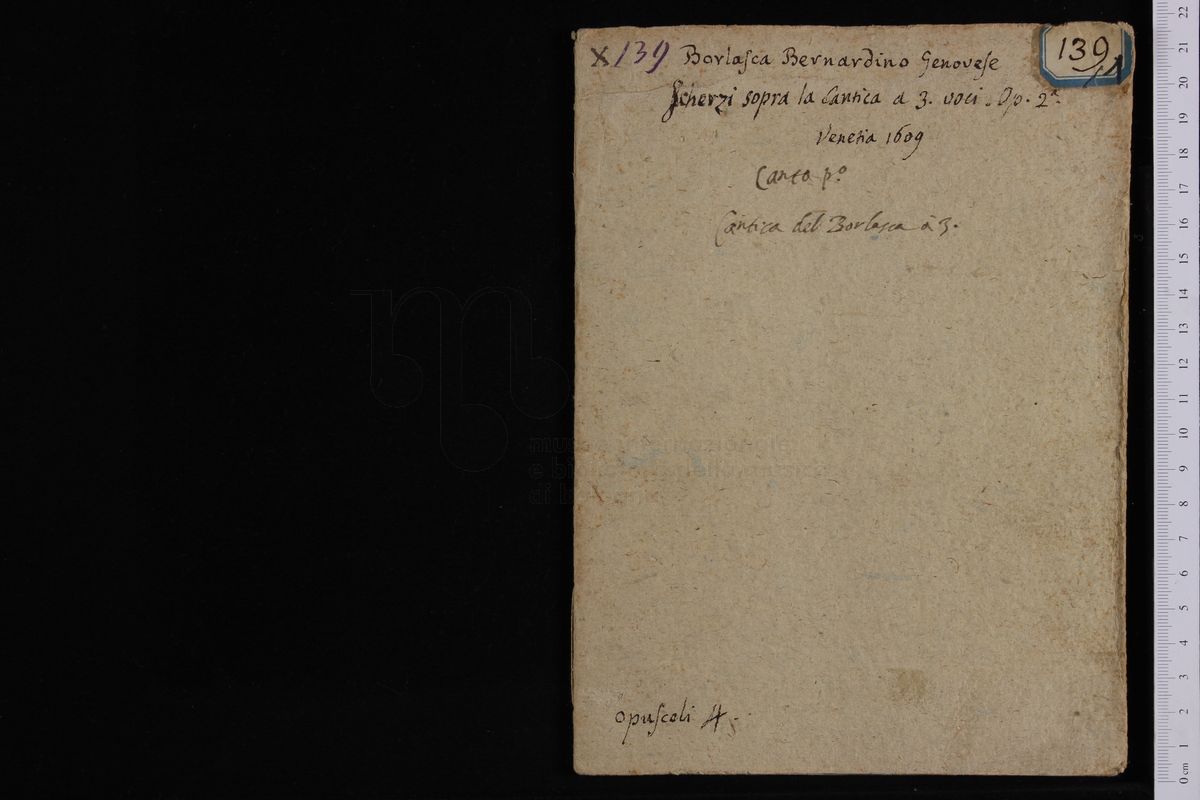 X 139 Borlasca Bernardino Genovese
139
Scherzi sopra la Cantica a 3. voci. Op. 2ª
Venetia 1609
Canto pº
Cantica del Borlasca à 3.
opuscoli 4.
22
21
20
19
18
17
16
15
14
13
12
11
10
9
8
7
6
5
4
3
2
1
0 cm